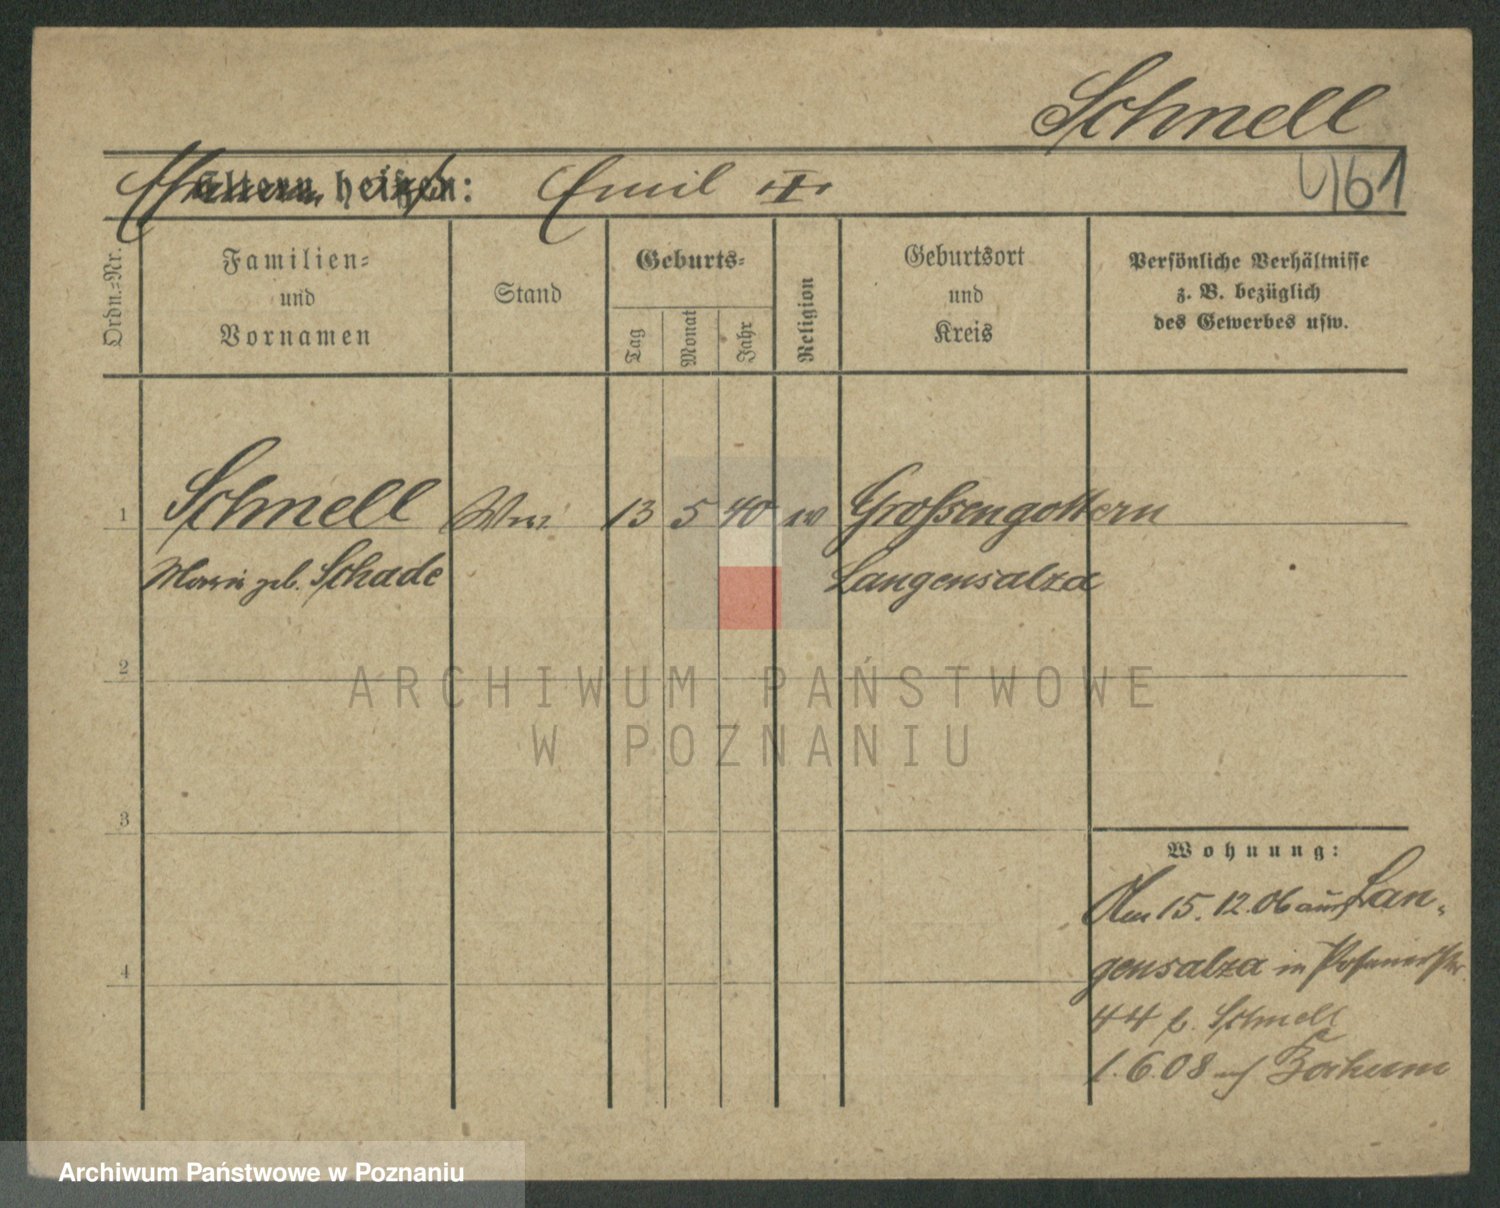 Schnell
Eltern heißen: Emil III
4161
Ordn.-Nr.
Familien-
und
Vornamen
Stand
Geburts-
Tag
Monat
Jahr
Religion
Geburtsort
und
Kreis
Persönliche Verhältnisse
z. B. bezüglich
des Gewerbes usw.
1 Schnell Wwe. 13 5 40 ev Grossengottern
Marie geb. Schade Langensalza
2
3
4
Wohnung:
Am 15.12.06 aus Lan-
gensalza in Posenerstr.
44 b. Schnell
1.6.08 auf Bochum
ARCHIWUM PAŃSTWOWE
W POZNANIU
Archiwum Państwowe w Poznaniu